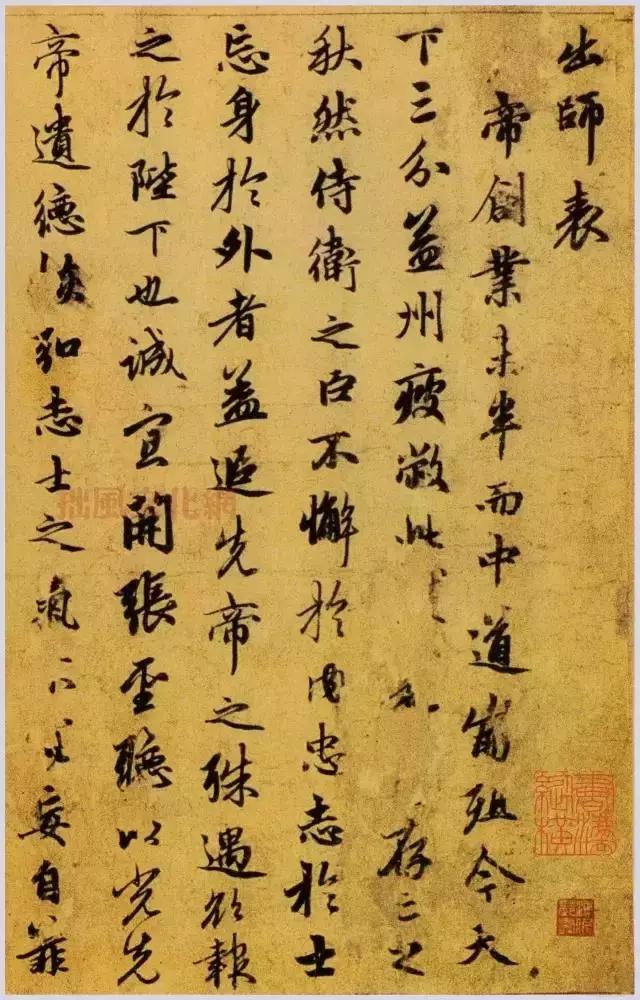 出師表
帝創業未半而中道崩殂今天
下三分益州疲敝此 存亡之
秋然侍衛之臣不懈於內忠志於士
忘身於外者蓋追先帝之殊遇欲報
之於陛下也誠宜開張聖聽以光先
帝遺德恢弘志士之氣不宜妄自菲
拙風文化網